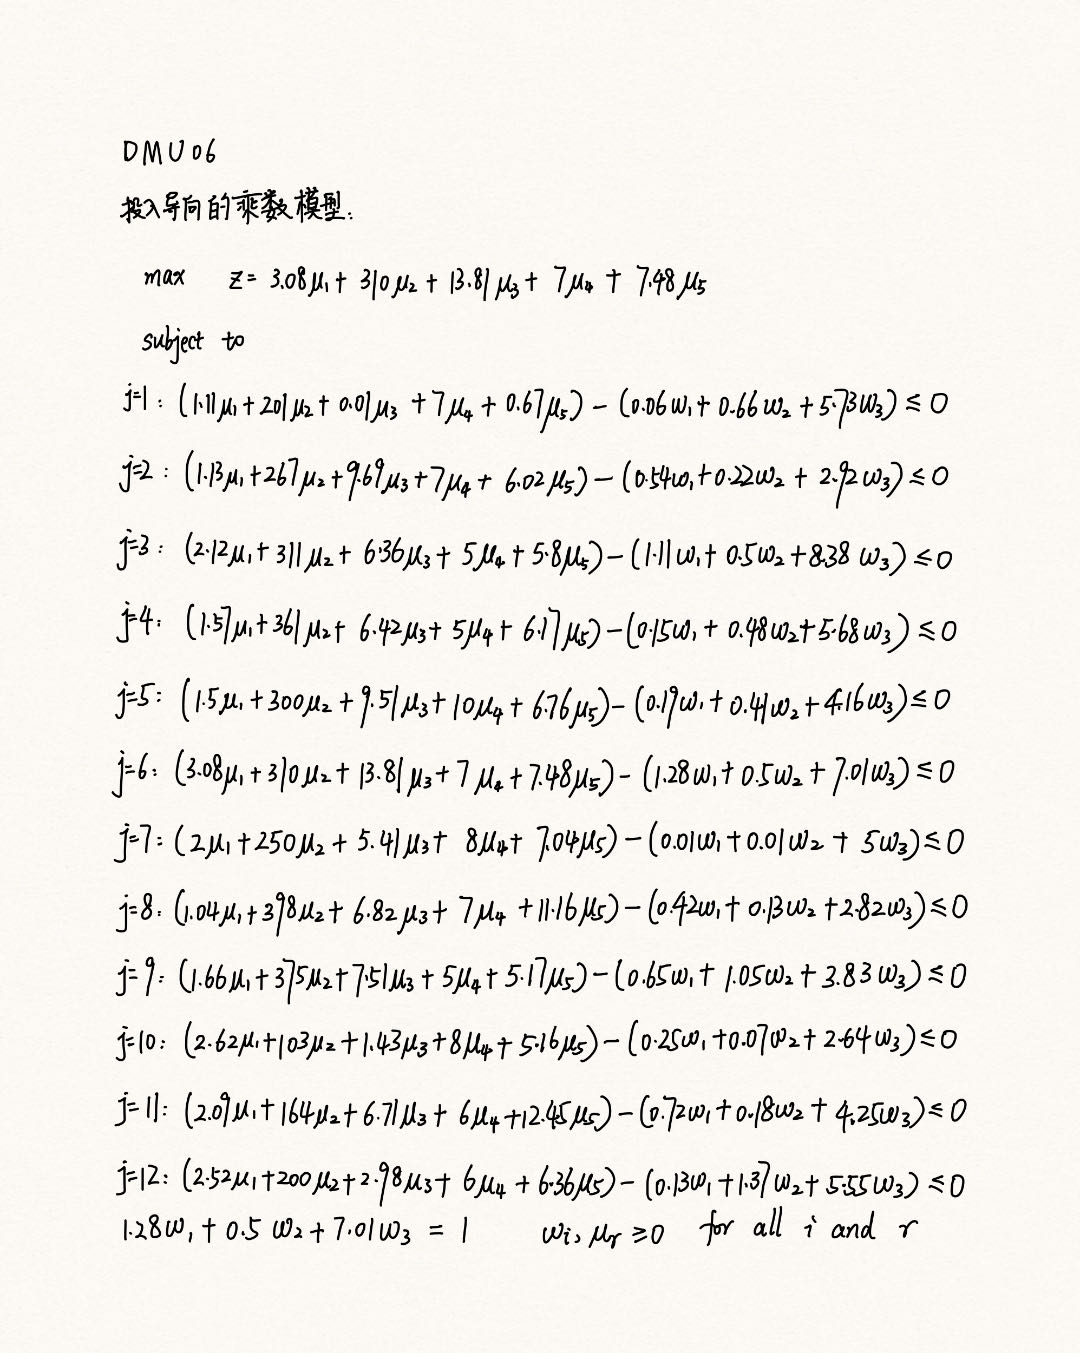 DMU06
投入导向的乘数模型:
max z = 3.08μ₁ + 310μ₂ + 13.81μ₃ + 7μ₄ + 7.48μ₅
subject to
j=1: (1.11μ₁ + 201μ₂ + 0.01μ₃ + 7μ₄ + 0.67μ₅) - (0.06ω₁ + 0.66ω₂ + 5.73ω₃) ≤ 0
j=2: (1.13μ₁ + 267μ₂ + 9.69μ₃ + 7μ₄ + 6.02μ₅) - (0.54ω₁ + 0.22ω₂ + 2.92ω₃) ≤ 0
j=3: (2.12μ₁ + 311μ₂ + 6.36μ₃ + 5μ₄ + 5.8μ₅) - (1.11ω₁ + 0.5ω₂ + 8.38ω₃) ≤ 0
j=4: (1.57μ₁ + 361μ₂ + 6.42μ₃ + 5μ₄ + 6.17μ₅) - (0.15ω₁ + 0.48ω₂ + 5.68ω₃) ≤ 0
j=5: (1.5μ₁ + 300μ₂ + 9.51μ₃ + 10μ₄ + 6.76μ₅) - (0.19ω₁ + 0.41ω₂ + 4.16ω₃) ≤ 0
j=6: (3.08μ₁ + 310μ₂ + 13.81μ₃ + 7μ₄ + 7.48μ₅) - (1.28ω₁ + 0.5ω₂ + 7.01ω₃) ≤ 0
j=7: (2μ₁ + 250μ₂ + 5.41μ₃ + 8μ₄ + 7.04μ₅) - (0.01ω₁ + 0.01ω₂ + 5ω₃) ≤ 0
j=8: (1.04μ₁ + 398μ₂ + 6.82μ₃ + 7μ₄ + 11.16μ₅) - (0.42ω₁ + 0.13ω₂ + 2.82ω₃) ≤ 0
j=9: (1.66μ₁ + 375μ₂ + 7.51μ₃ + 5μ₄ + 5.17μ₅) - (0.65ω₁ + 1.05ω₂ + 3.83ω₃) ≤ 0
j=10: (2.62μ₁ + 103μ₂ + 1.43μ₃ + 8μ₄ + 5.16μ₅) - (0.25ω₁ + 0.07ω₂ + 2.64ω₃) ≤ 0
j=11: (2.09μ₁ + 164μ₂ + 6.71μ₃ + 6μ₄ + 12.45μ₅) - (0.72ω₁ + 0.18ω₂ + 4.25ω₃) ≤ 0
j=12: (2.52μ₁ + 200μ₂ + 2.98μ₃ + 6μ₄ + 6.36μ₅) - (0.13ω₁ + 1.37ω₂ + 5.55ω₃) ≤ 0
1.28ω₁ + 0.5ω₂ + 7.01ω₃ = 1 ωᵢ, μᵣ ≥ 0 for all i and r